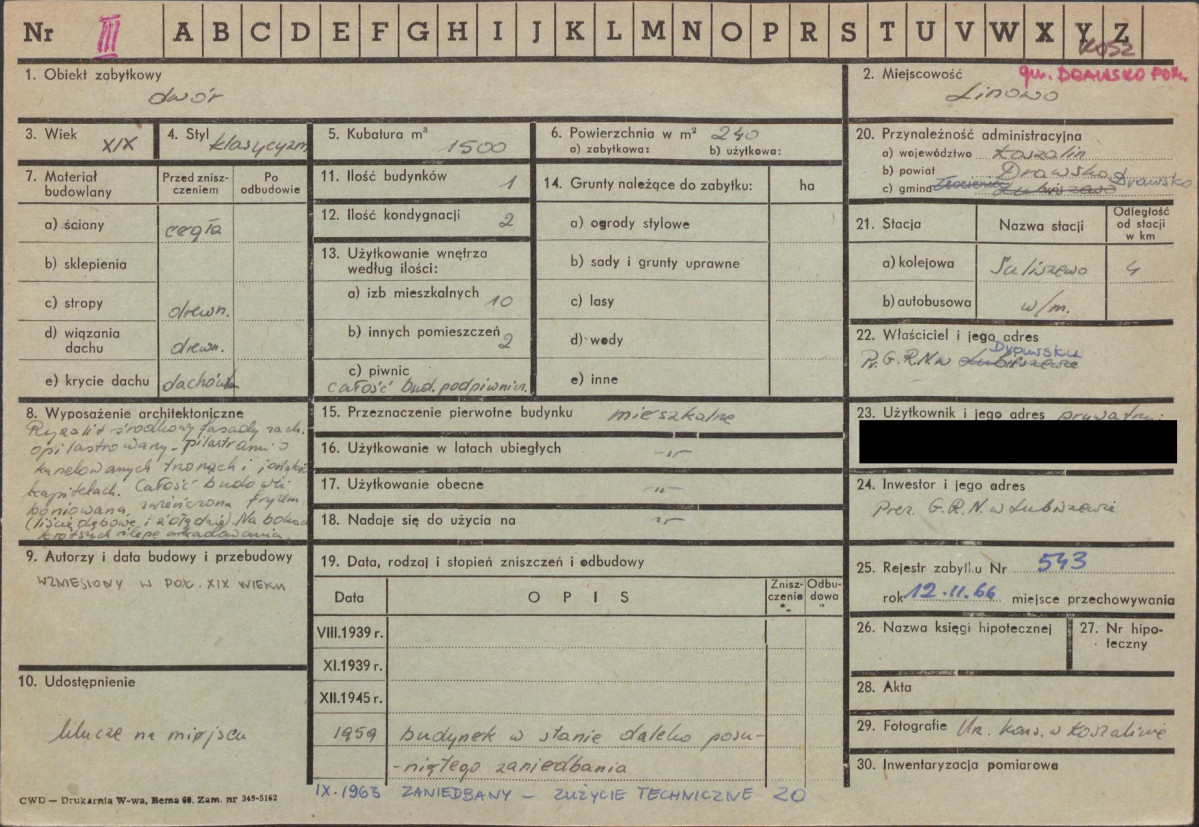 Nr III A B C D E F G H I J K L M N O P R S T U V W X Y Z
KOSZ
1. Obiekt zabytkowy
dwór
2. Miejscowość gm. DRAWSKO POM.
Linowo
3. Wiek XIX
4. Styl klasycyzm
5. Kubatura m³
1500
6. Powierzchnia w m² 240
a) zabytkowa: b) użytkowa:
7. Materiał budowlany
Przed znisz-
czeniem
Po
odbudowie
a) ściany cegła
b) sklepienia
c) stropy drewn.
d) wiązania
dachu drewn.
e) krycie dachu dachówka
8. Wyposażenie architektoniczne
Ryzalit środkowy fasady zach.
opilastrowany - pilastrami o
kanelowanych trzonach i jońskich
kapitelach. Całość budowli
boniowana, zwieńczona fryzem
(liście dębowe i żołędzie). Na bokach
krótszych ślepe arkadowania.
9. Autorzy i data budowy i przebudowy
WZNIESIONY W POŁ. XIX WIEKU
10. Udostępnienie
klucze na miejscu
11. Ilość budynków 1
12. Ilość kondygnacji 2
13. Użytkowanie wnętrza
według ilości:
a) izb mieszkalnych 10
b) innych pomieszczeń 2
c) piwnic
całość bud. podpiwnicz.
14. Grunty należące do zabytku: ha
a) ogrody stylowe
b) sady i grunty uprawne
c) lasy
d) wody
e) inne
15. Przeznaczenie pierwotne budynku mieszkalne
16. Użytkowanie w latach ubiegłych -"-
17. Użytkowanie obecne -"-
18. Nadaje się do użycia na -"-
19. Data, rodzaj i stopień zniszczeń i odbudowy
Data O P I S
Znisz-
czenie
%
Odbu-
dowa
%
VIII.1939 r.
XI.1939 r.
XII.1945 r.
1959 budynek w stanie daleko posu-
-niętego zaniedbania
IX.1963 ZANIEDBANY – ZUŻYCIE TECHNICZNE 20
20. Przynależność administracyjna
a) województwo Koszalin
b) powiat Drawsko
c) gmina Łubiszewo Drawsko
21. Stacja
Nazwa stacji
Odległość
od stacji
w km
a) kolejowa Suliszewo 4
b) autobusowa w/m.
22. Właściciel i jego adres
Pr. G.R.N. w Łubiszewie Drawsku
23. Użytkownik i jego adres prywatn:
24. Inwestor i jego adres
Prez. G.R.N. w Łubiszewie
25. Rejestr zabytku Nr 543
rok 12.11.66 miejsce przechowywania
26. Nazwa księgi hipotecznej
27. Nr hipo-
teczny
28. Akta
29. Fotografie Urz. Kons. w Koszalinie
30. Inwentaryzacja pomiarowa
CWD — Drukarnia W-wa, Bema 60. Zam. nr 349-5162